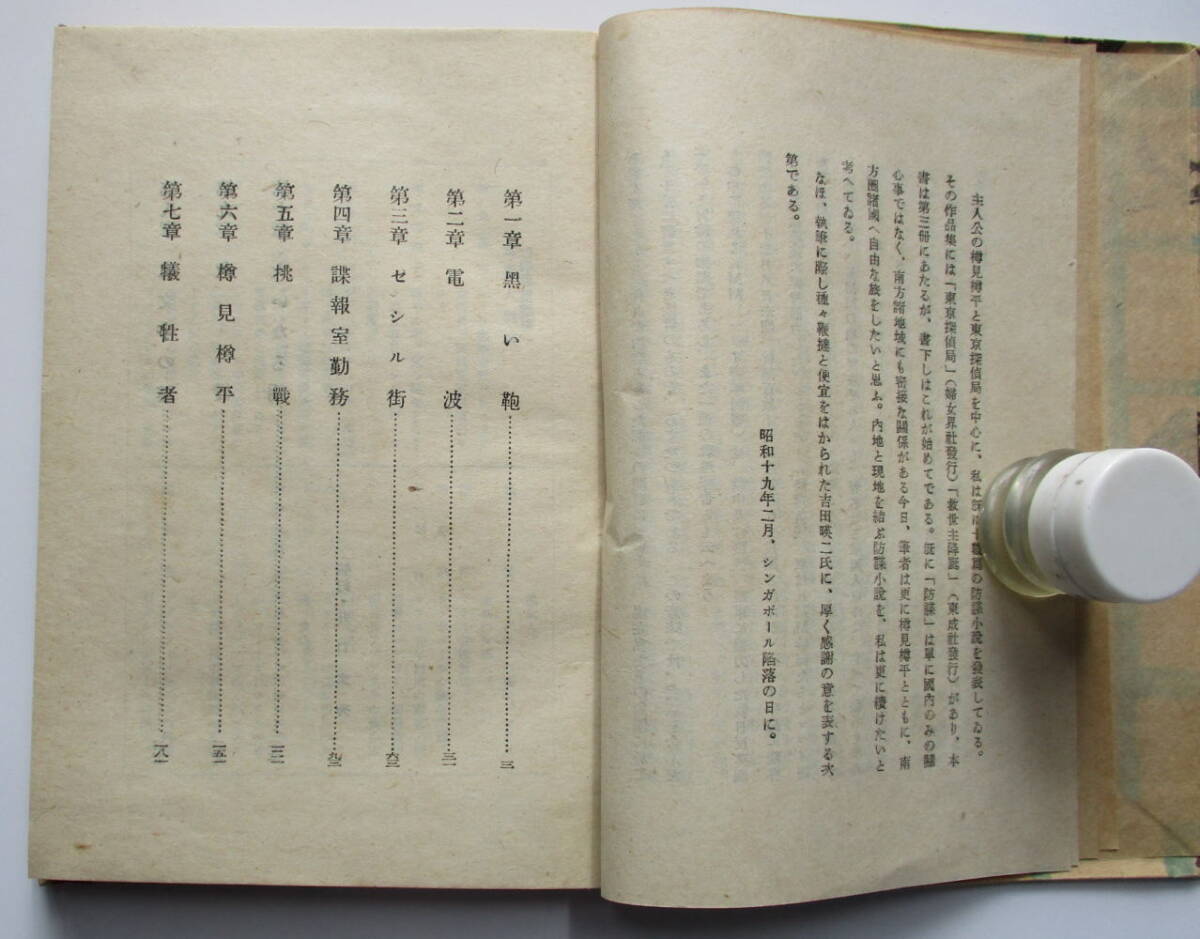 主人公の樽見樽平と東京探偵局を中心に、私は既に十數篇の防諜小說を發表してゐる。
その作品集には「東京探偵局」（婦女界社發行）「救世主降誕」（東成社發行）があり、本
書は第三冊にあたるが、書下しはこれが始めてである。既に「防諜」は單に國內のみの關
心事ではなく、南方諸地域にも密接な關係がある今日、筆者は更に樽見樽平とともに、南
方圈諸國へ自由な旅をしたいと思ふ。內地と現地を結ぶ防諜小說を、私は更に續けたいと
考へてゐる。
なほ、執筆に際し種々鞭撻と便宜をはかられた吉田暎二氏に、厚く感謝の意を表する次
第である。
昭和十九年二月、シンガポール陷落の日に。
第一章 黑い鞄……三
第二章 電波……三一
第三章 ゼシル街……六三
第四章 諜報室勤務……九三
第五章 挑戰……一二一
第六章 樽見樽平……一五一
第七章 犧牲者……一八一